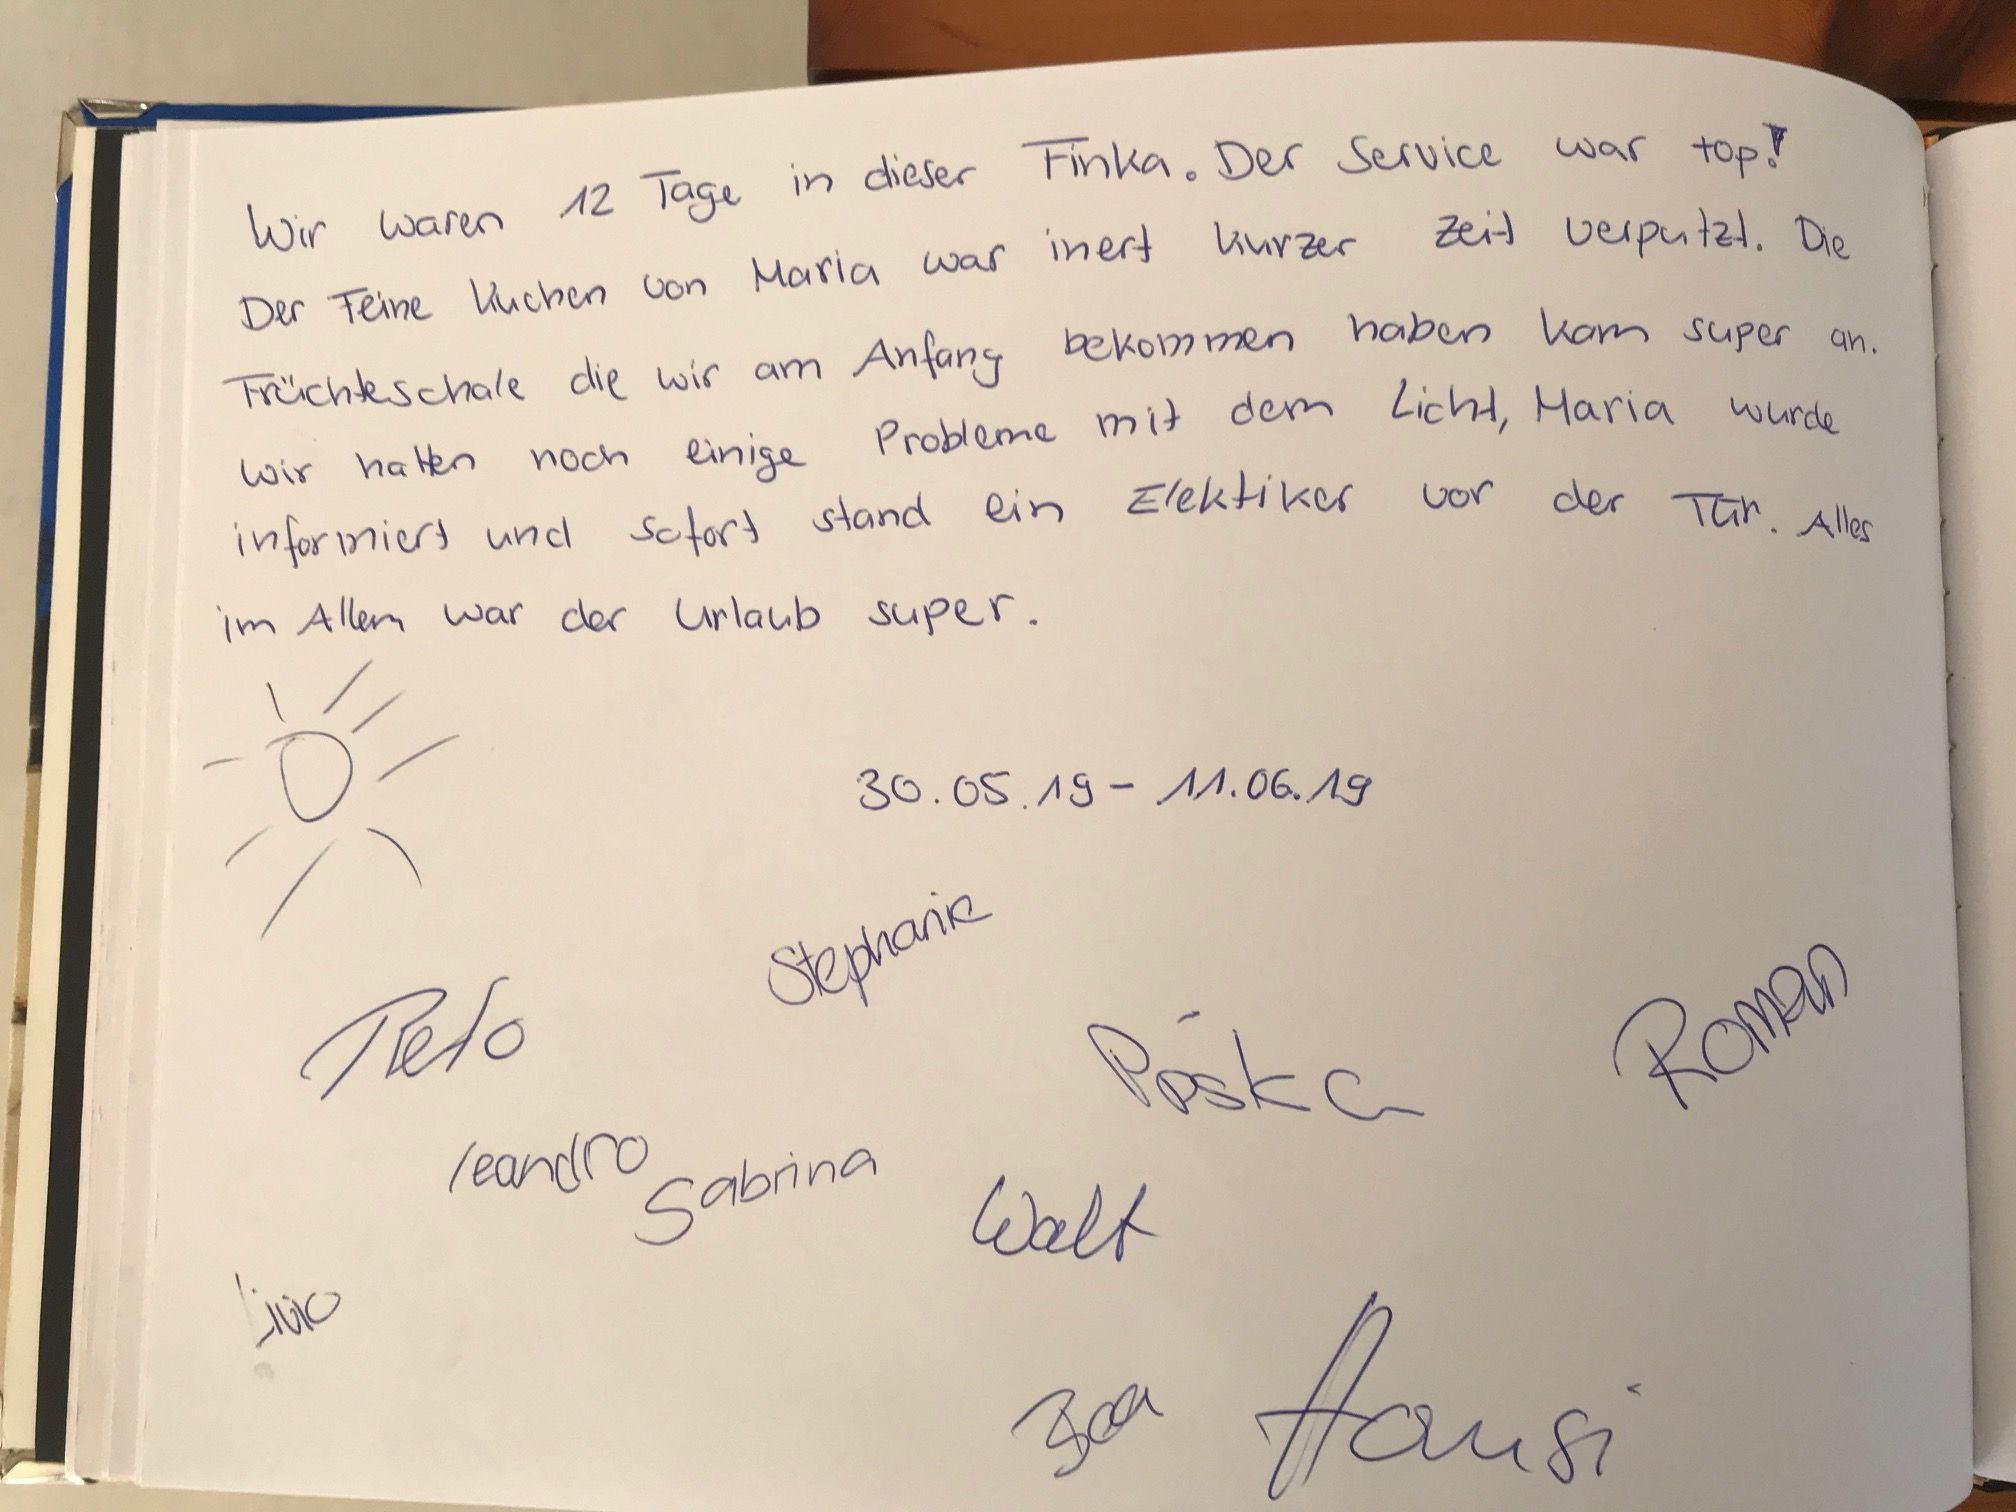 Wir waren 12 Tage in dieser Finka. Der Service war top!
Der Feine Kuchen von Maria war inert kurzer Zeit verputzt. Die
Früchteschale die wir am Anfang bekommen haben kam super an.
Wir hatten noch einige Probleme mit dem Licht, Maria wurde
informiert und sofort stand ein Elektiker vor der Tür. Alles
im Allem war der Urlaub super.
30.05.19 - 11.06.19
Stephanie
Reto
Roman
Leandro
Sabrina
Walt
Livio
Hansi